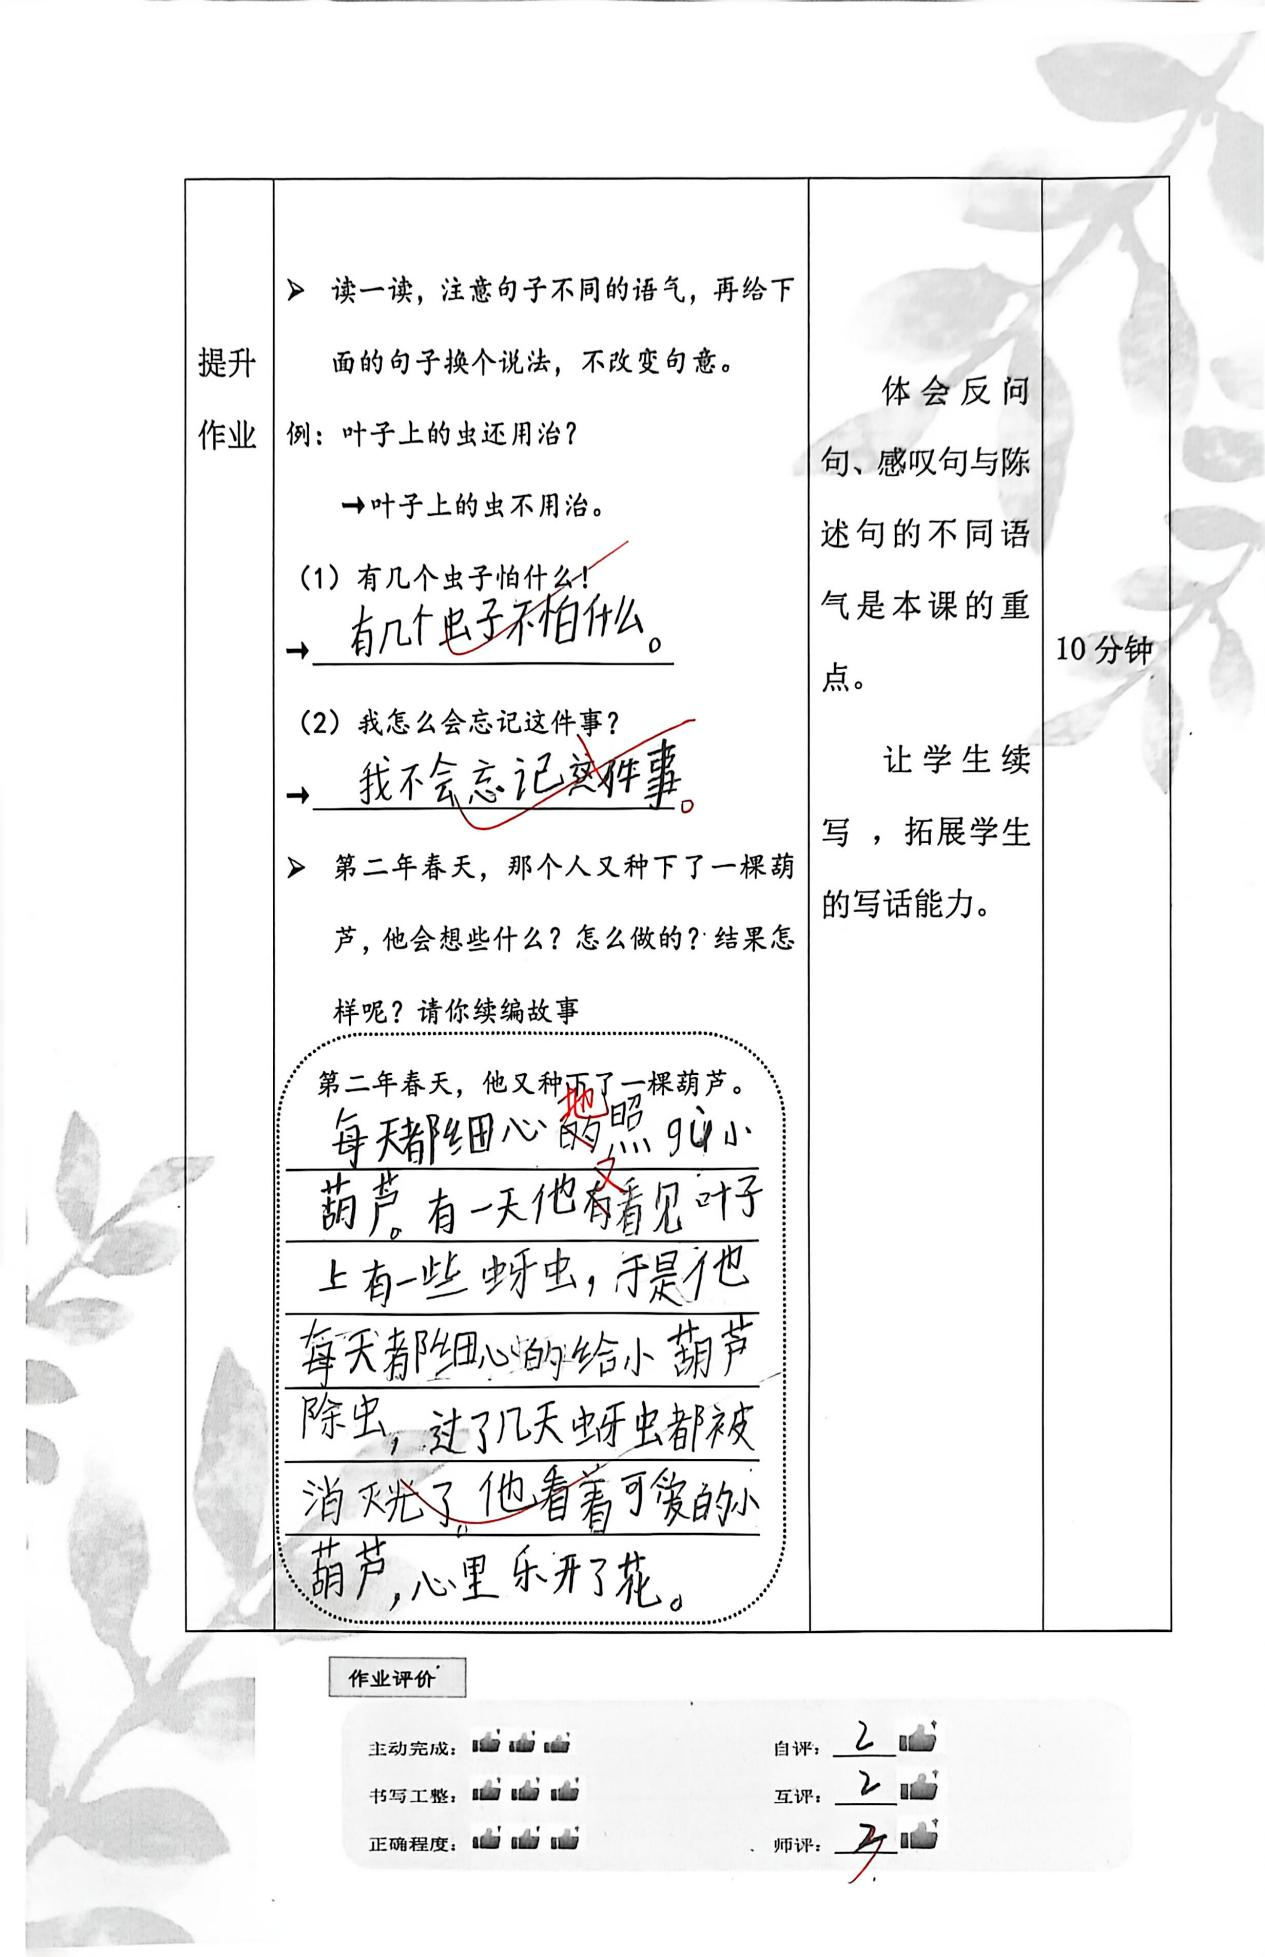 提升
作业
➢ 读一读，注意句子不同的语气，再给下
面的句子换个说法，不改变句意。
例：叶子上的虫还用治？
→叶子上的虫不用治。
（1）有几个虫子怕什么！
→有几个虫子不怕什么。
（2）我怎么会忘记这件事？
→我不会忘记这件事。
➢ 第二年春天，那个人又种下了一棵葫
芦，他会想些什么？怎么做的？结果怎
样呢？请你续编故事
第二年春天，他又种下了一棵葫芦。
地
每天都细心的照gù小
又
葫芦。有一天他有看见叶子
上有一些蚜虫，于是他
每天都细心的给小葫芦
除虫，过了几天蚜虫都被
消灭光了。他看着可爱的小
葫芦，心里乐开了花。
体会反问
句、感叹句与陈
述句的不同语
气是本课的重
点。
让学生续
写，拓展学生
的写话能力。
10分钟
作业评价
主动完成：
自评：2
书写工整：
互评：2
正确程度：
师评：